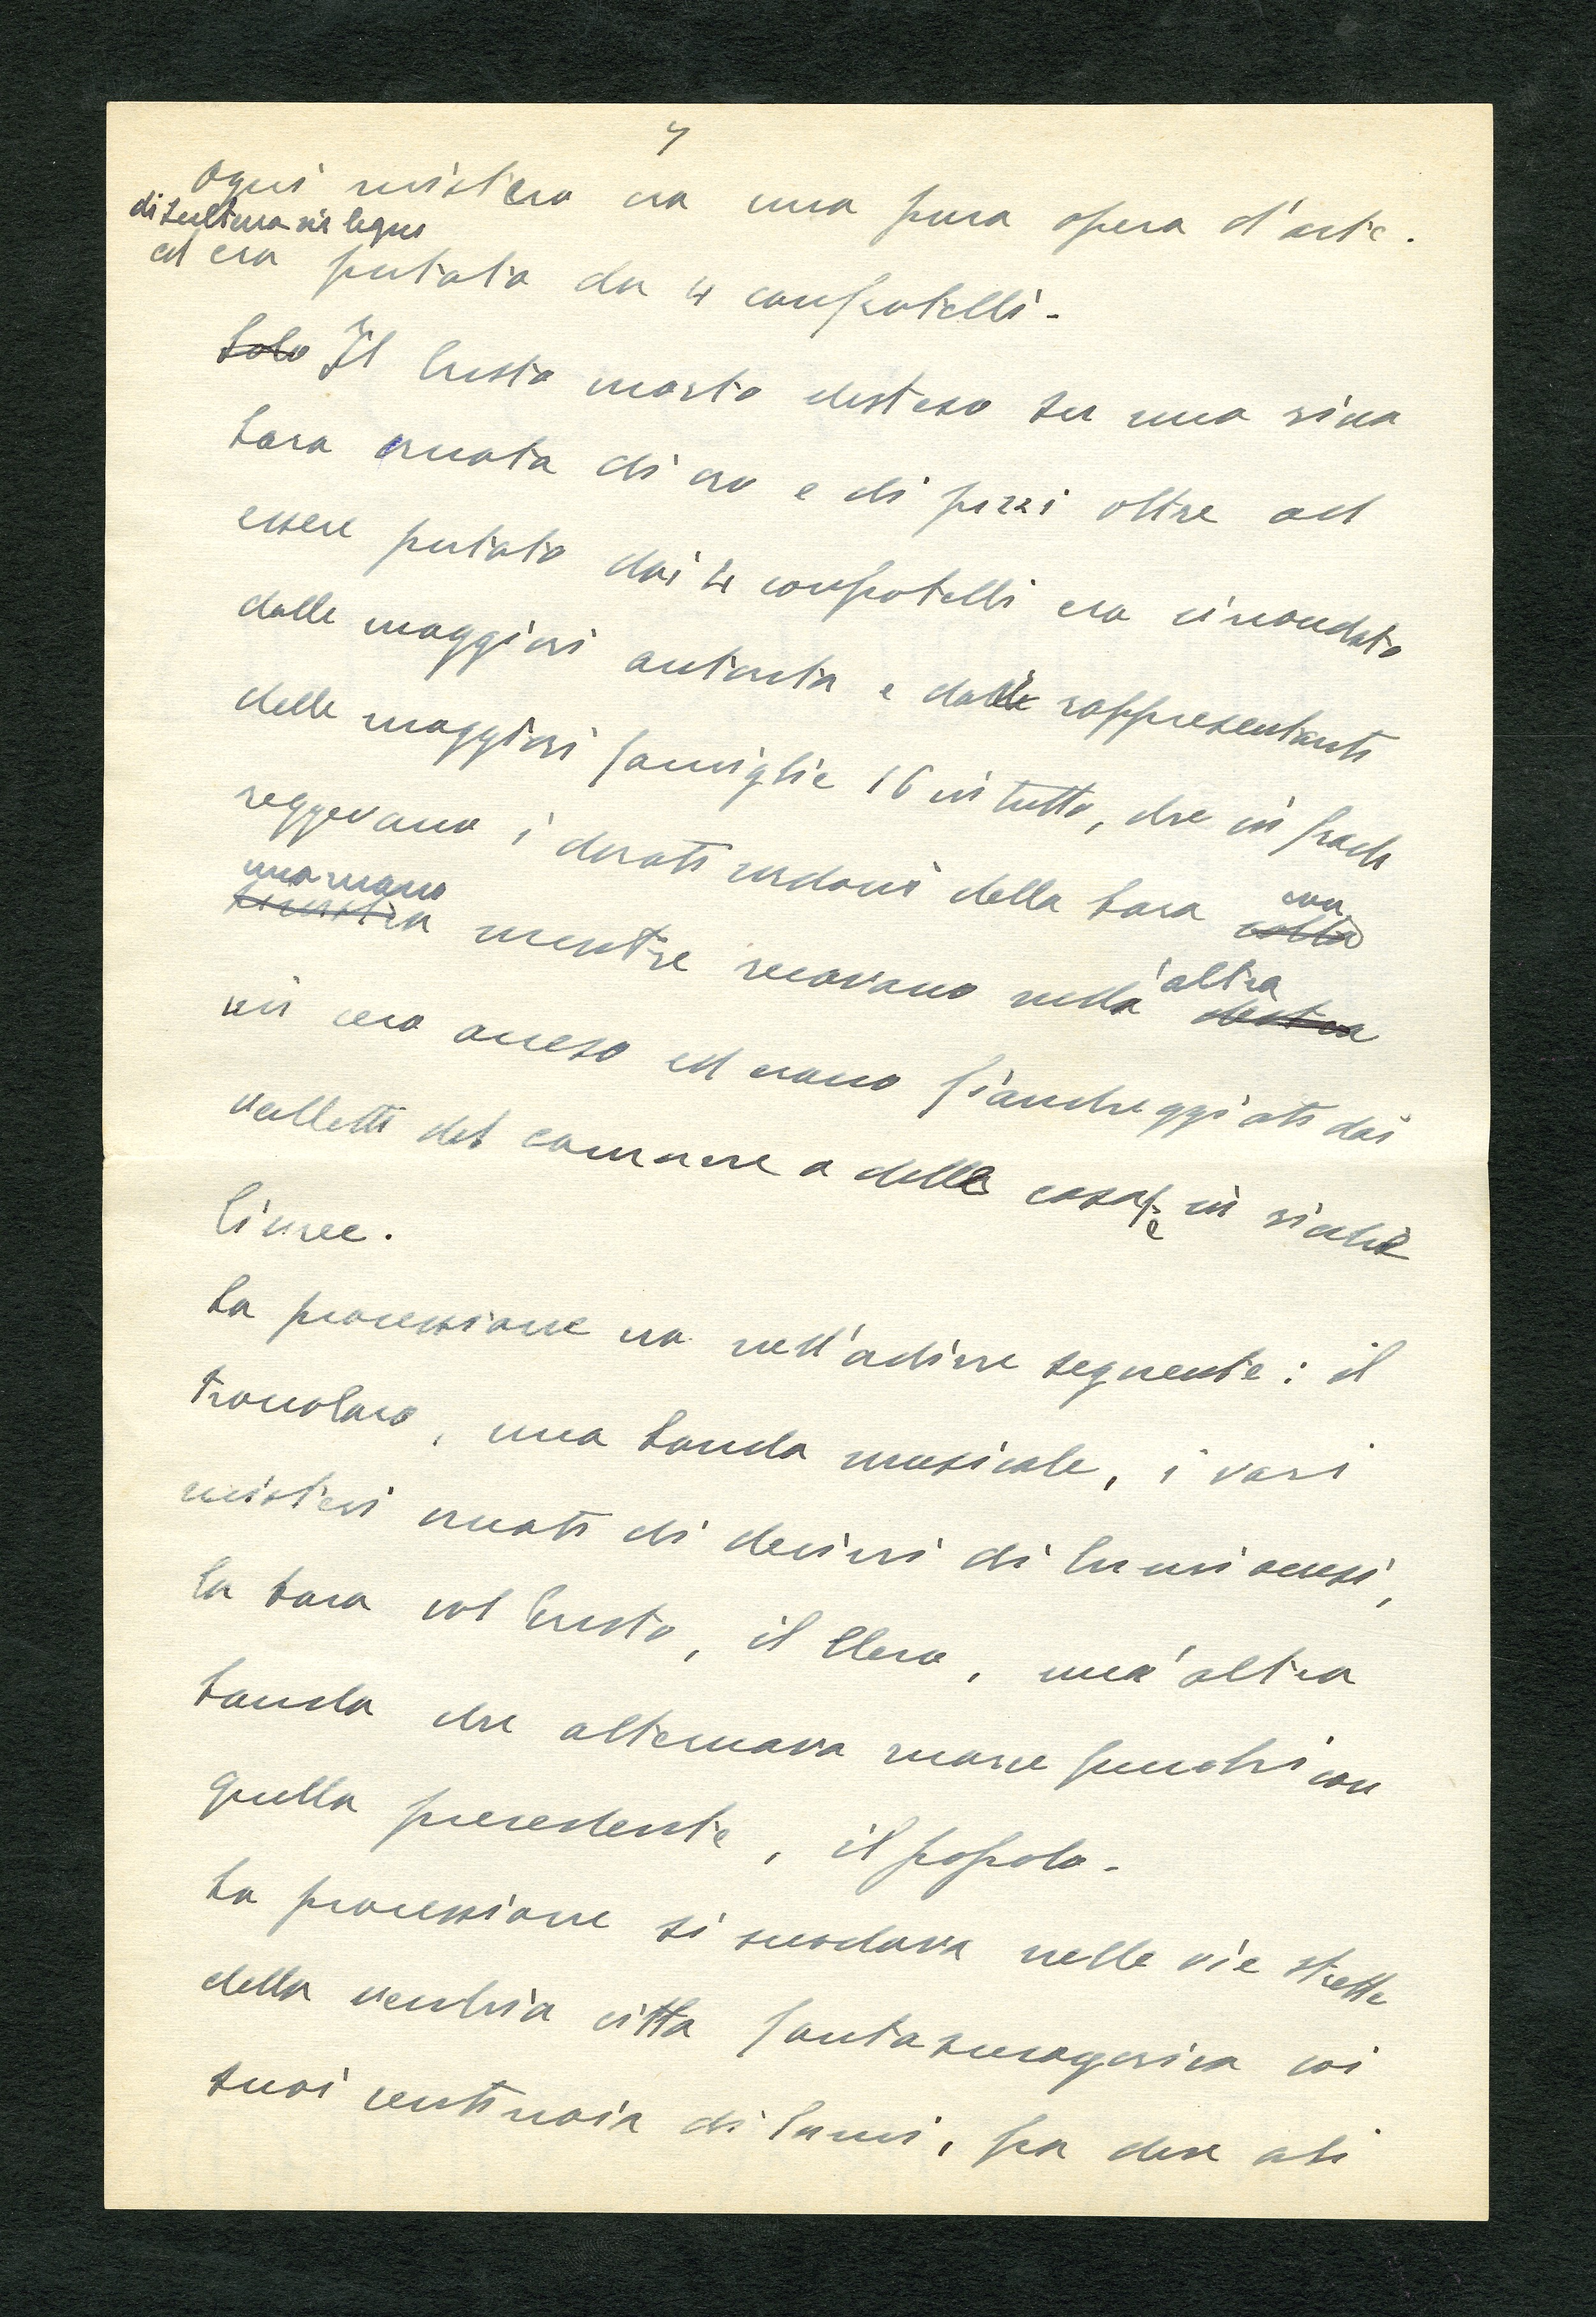 7
ogni mistero era una pura opera d'arte.
di scultura in legno
ed era portato da 4 confratelli.
Solo Il Cristo morto disteso su una ricca
bara ornata di oro e di pizzi oltre ad
essere portato dai 4 confratelli era circondato
dalle maggiori autorità e dalle rappresentanti
delle maggiori famiglie 16 in tutto, che in frach
reggevano i dorati cordoni della bara colla con
una mano
sinistra mentre recavano nella 'altra destra
un cero acceso ed erano fiancheggiati dai
valletti del comune a delle casate in ricche
livree.
La processione era nell'ordine seguente: il
troccolaro, una banda musicale, i vari
misteri ornati di decine di lumi accesi,
la bara col Cristo, il Clero, una'altra
banda che alternava marce funebri con
quella precedente, il popolo.
La processione si snodava nelle vie strette
della vecchia città fantasmagorica coi
suoi centinaia di lumi, fra due ali